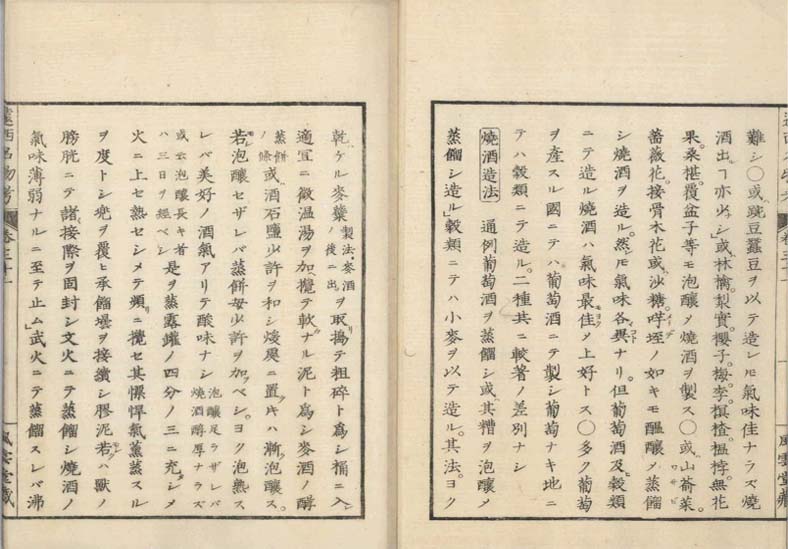 難シ〇或豌豆蠶豆ヲ以テ造レ𪜈氣味佳ナラズ燒
酒出ヿ亦少シ」或林檎。梨實。櫻子。梅。李。榠樝。榲桲。無花
果。桑椹。覆盆子等モ泡釀〆燒酒ヲ製ス〇或山萮菜。ワサビ
薔薇花。接骨木花或沙糖。垤ノ如キモ醞釀〆蒸餾
シ燒酒ヲ造ル。然𪜈氣味各異ナリ。但葡萄酒及穀類
ニテ造ル燒酒ハ氣味最佳〆上好トス〇多ク葡萄
ヲ産スル國ニテハ葡萄酒ニテ製シ葡萄ナキ地ニ
テハ穀類ニテ造ル。二種共ニ較著ノ差別ナシ
燒酒造法 通例葡萄酒ヲ蒸餾シ或其糟ヲ泡釀〆
蒸餾シ造ル」穀類ニテハ小麥ヲ以テ造ル。其法。ヨク
風雲堂藏
乾ケル麥糵製法。麥酒ノ後ニ出ヲ取搗テ粗碎ト爲シ桶ニ入
適宜ニ微温湯ヲ加。攪テ軟ナル泥ト爲シ麥酒ノ酵
蒸餅ノ條或酒石鹽少許ヲ和シ煖處ニ置キハ漸泡釀ス。
若泡釀セザレバ蒸餅母少許ヲ加ベシ。ヨク泡熟ス
レバ美好ノ酒氣アリテ酸味ナシ泡釀足ラザレバ燒酒醇厚ナラズ
或云泡釀長キ者ハ三日ヲ經ベシ是ヲ蒸露罐ノ四分ノ三ニ充シメ
火ニ上セ熟セシメテ頻ニ攪セ其慓悍氣薰蒸スル
ヲ度トシ兜ヲ覆ヒ承餾壜ヲ接續シ膠泥若ハ獸ノ
膀胱ニテ諸接際ヲ固封シ文火ニテ蒸餾シ燒酒ノ
氣味薄弱ナルニ至テ止ム」武火ニテ蒸餾スレバ沸
遠西名物考 卷三十一
風雲堂藏